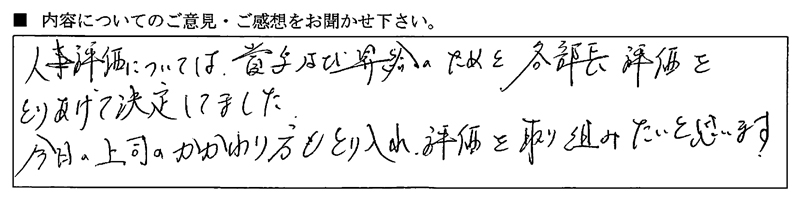 ■ 内容についてのご意見・ご感想をお聞かせ下さい。
人事評価については、賞与及び昇給のためと各部長評価を
とりあげて決定してました。
今日の上司のかかわり方もとり入れ、評価を取り組みたいと思います